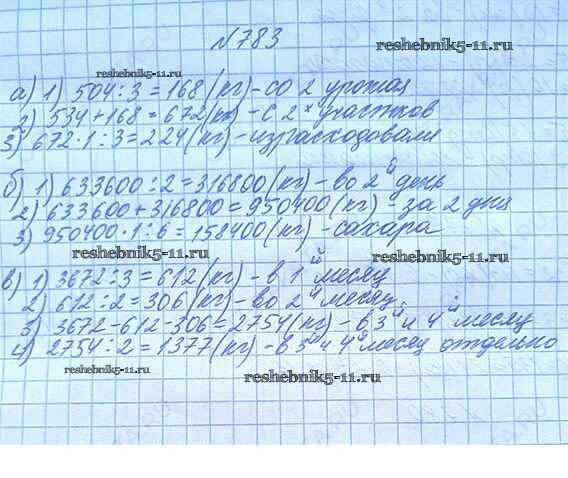 №783
reshebnik5-11.ru
reshebnik5-11.ru
а) 1) 504:3=168(кг)-со 2 урожая
2) 534+168=672(кг)-с 2х участков
3) 672·1:3=224(кг)-израсходовали
б) 1) 633600:2=316800(кг)-во 2й день
2) 633600+316800=950400(кг)-за 2 дня
3) 950400·1:6=158400(кг)-сахара
reshebnik5-11.ru
reshebnik5-11.ru
в) 1) 3672:3=612(кг)-в 1й месяц
2) 612:2=306(кг)-во 2й месяц
3) 3672-612-306=2754(кг)-в 3й и 4й месяц
4) 2754:2=1377(кг)-в 3й и 4й месяц отдельно
reshebnik5-11.ru
reshebnik5-11.ru
reshebnik5-11.ru